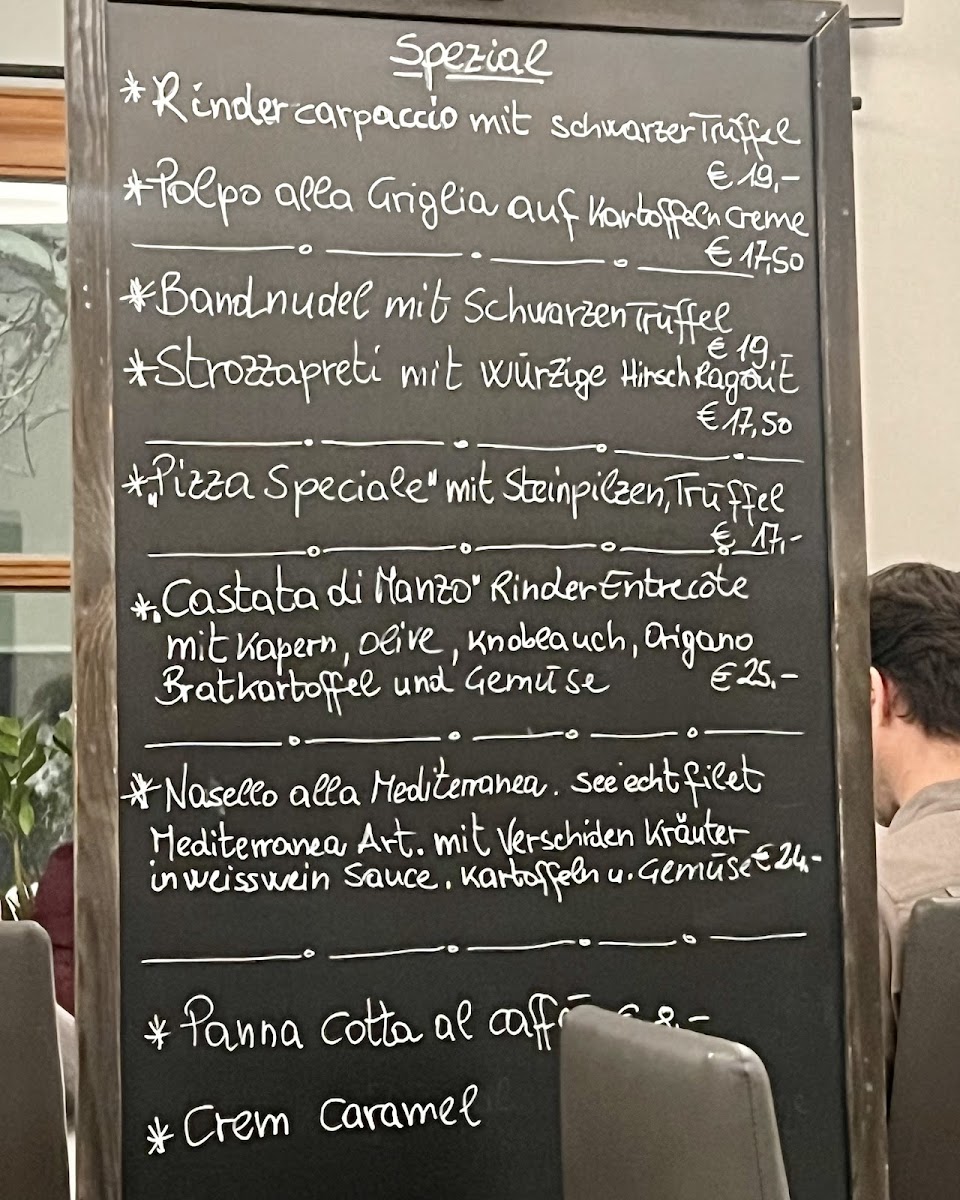 Spezial
*Rindercarpaccio mit schwarzer Trüffel
€ 19,-
*Polpo alla Griglia auf Kartoffeln creme
€ 17,50
*Bandnudel mit Schwarzen Trüffel
€ 19,-
*Strozzapreti mit würzige Hirsch Ragout
€ 17,50
*„Pizza Speciale" mit Steinpilzen, Trüffel
€ 17,-
*„Castata di Manzo" Rinder Entrecôte
mit Kapern, Olive, Knobeauch, Origano
Bratkartoffel und Gemüse € 25,-
*Nasello alla Mediterranea. See'echtfilet
Mediterranea Art. mit Verschiden Kräuter
in weisswein Sauce. Kartoffeln u. Gemüse € 24,-
* Panna Cotta al caffè € 8,-
* Crem Caramel